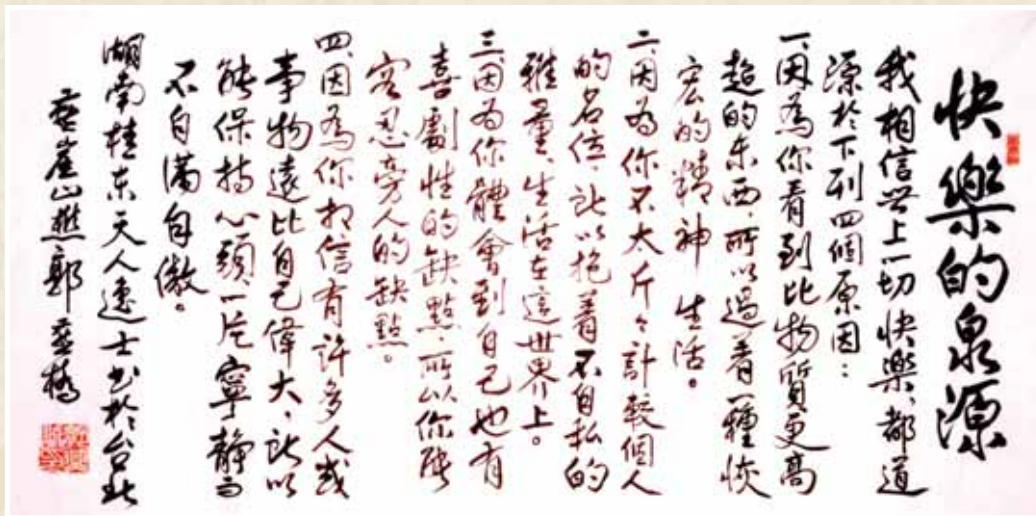 快樂的泉源
我相信世上一切快樂，都道
源於下列四個原因：
一、因為你看到比物質更高
超的东西，所以過着一種恢
宏的精神 生活。
二、因為你不太斤々計較個人
的名位，所以抱着不自私的
雅量，生活在這世界上。
三、因为你體會到自己也有
喜劇性的缺點，所以你能
容忍旁人的缺點。
四、因為你相信有許多人或
事物遠比自己偉大，所以
能保持心頭一片寧靜而
不自滿自傲。
湖南桂东天人逺士书於台北
崖山樵郭橋